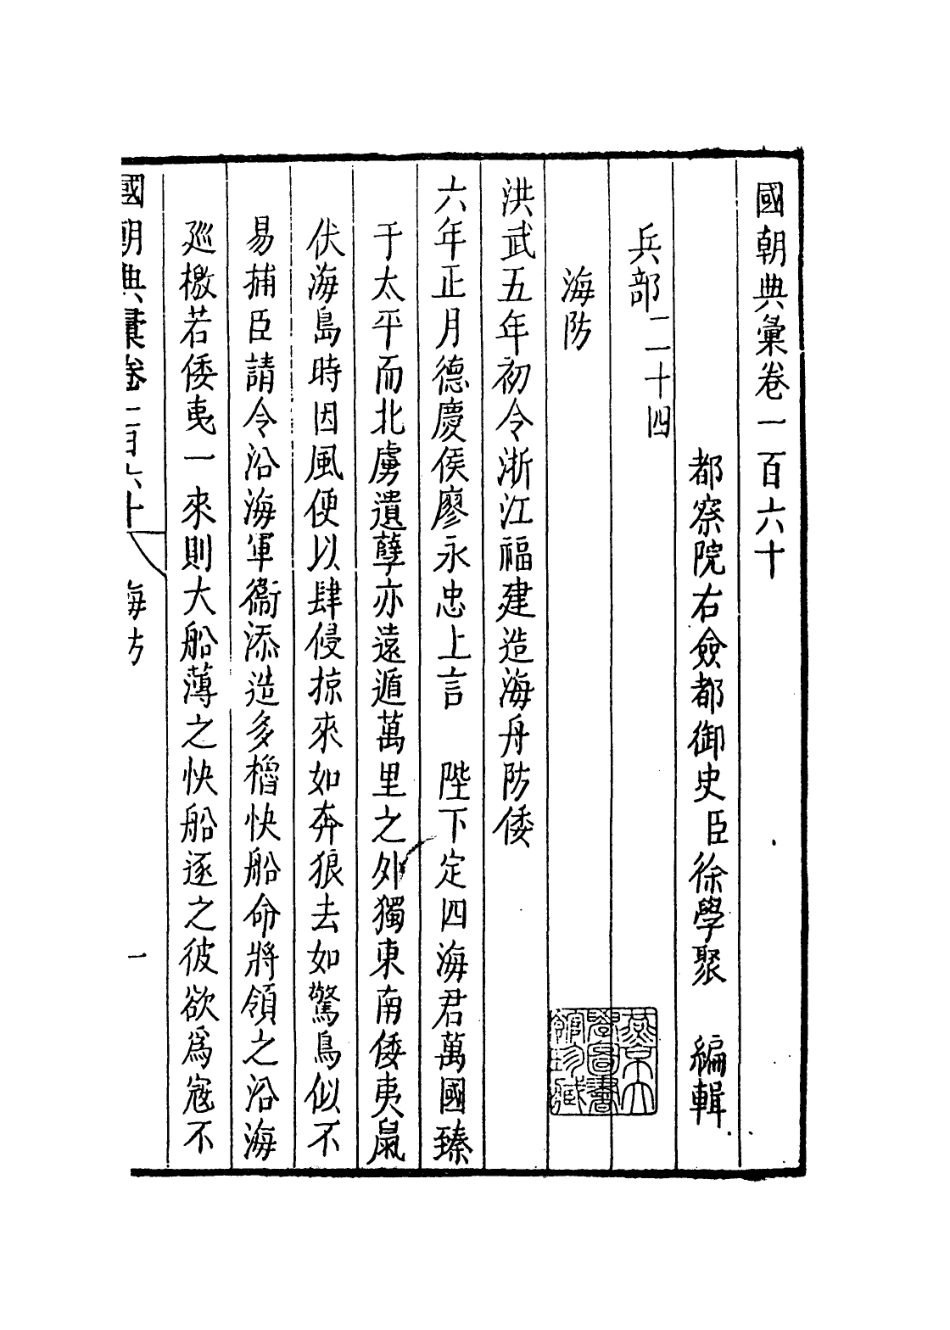 國朝典彙卷一百六十
都察院右僉都御史臣徐學聚 編輯
兵部二十四
海防
洪武五年初令浙江福建造海舟防倭
六年正月德慶侯廖永忠上言 陛下定四海君萬國臻
于太平而北虜遺孽亦遠遁萬里之外獨東南倭夷鼠
伏海島時因風便以肆侵掠來如奔狼去如驚鳥似不
易捕臣請令沿海軍衞添造多櫓快船命將領之沿海
廵檄若倭夷一來則大船薄之快船逐之彼欲爲寇不
國朝典彙卷一百六十 海防 一
燕京大
學圖書
館珍藏